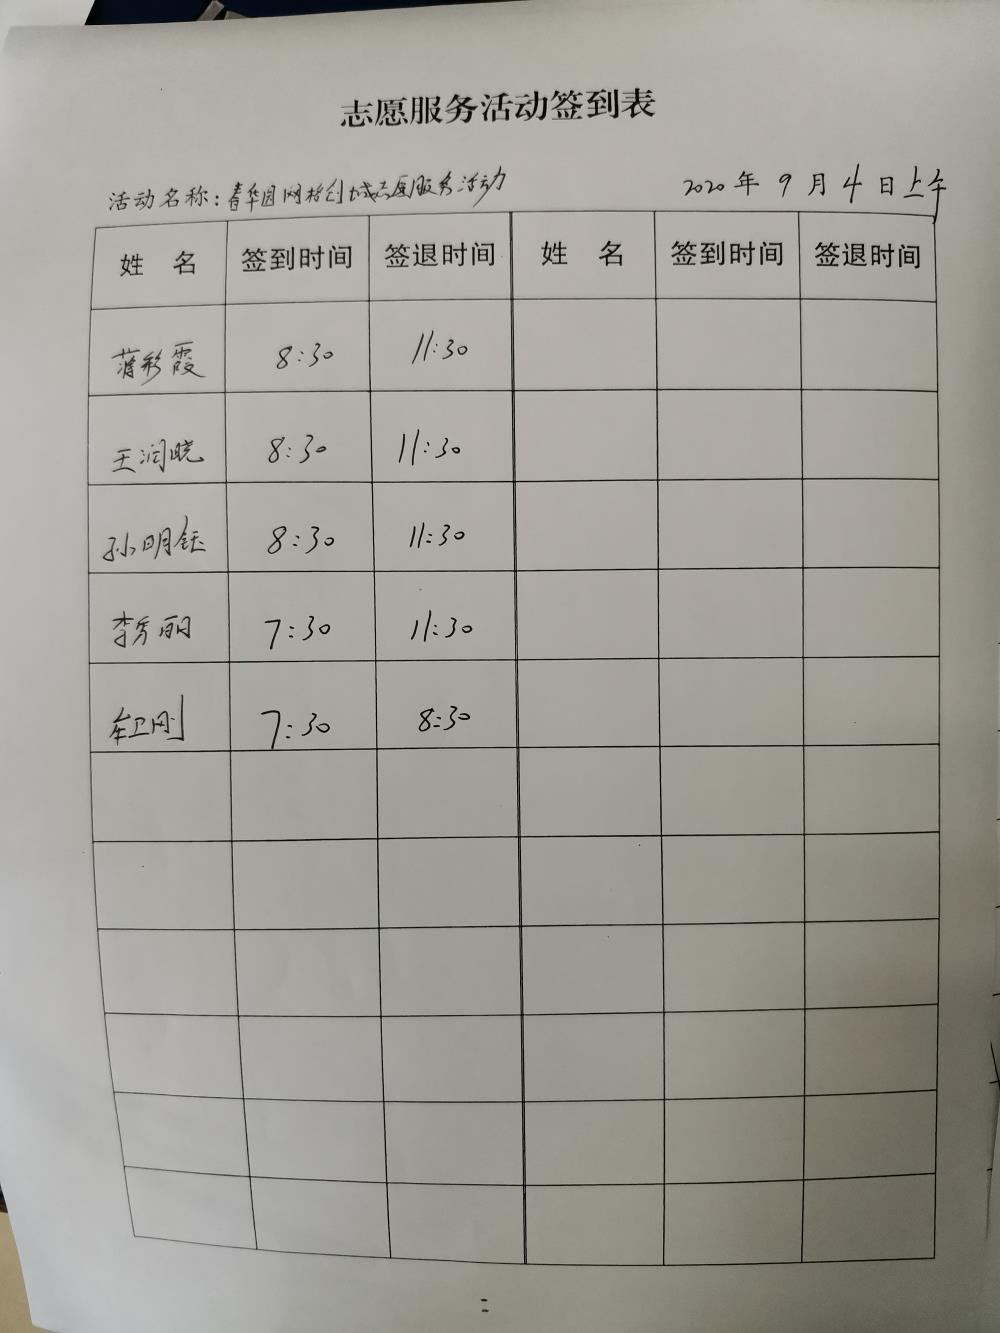 志愿服务活动签到表
活动名称：春华园网格创城志愿服务活动 2020年9月4日上午
姓 名 签到时间 签退时间 姓 名 签到时间 签退时间
蒲彩霞 8:30 11:30
王润晓 8:30 11:30
孙明钰 8:30 11:30
李秀丽 7:30 11:30
7:30 8:30